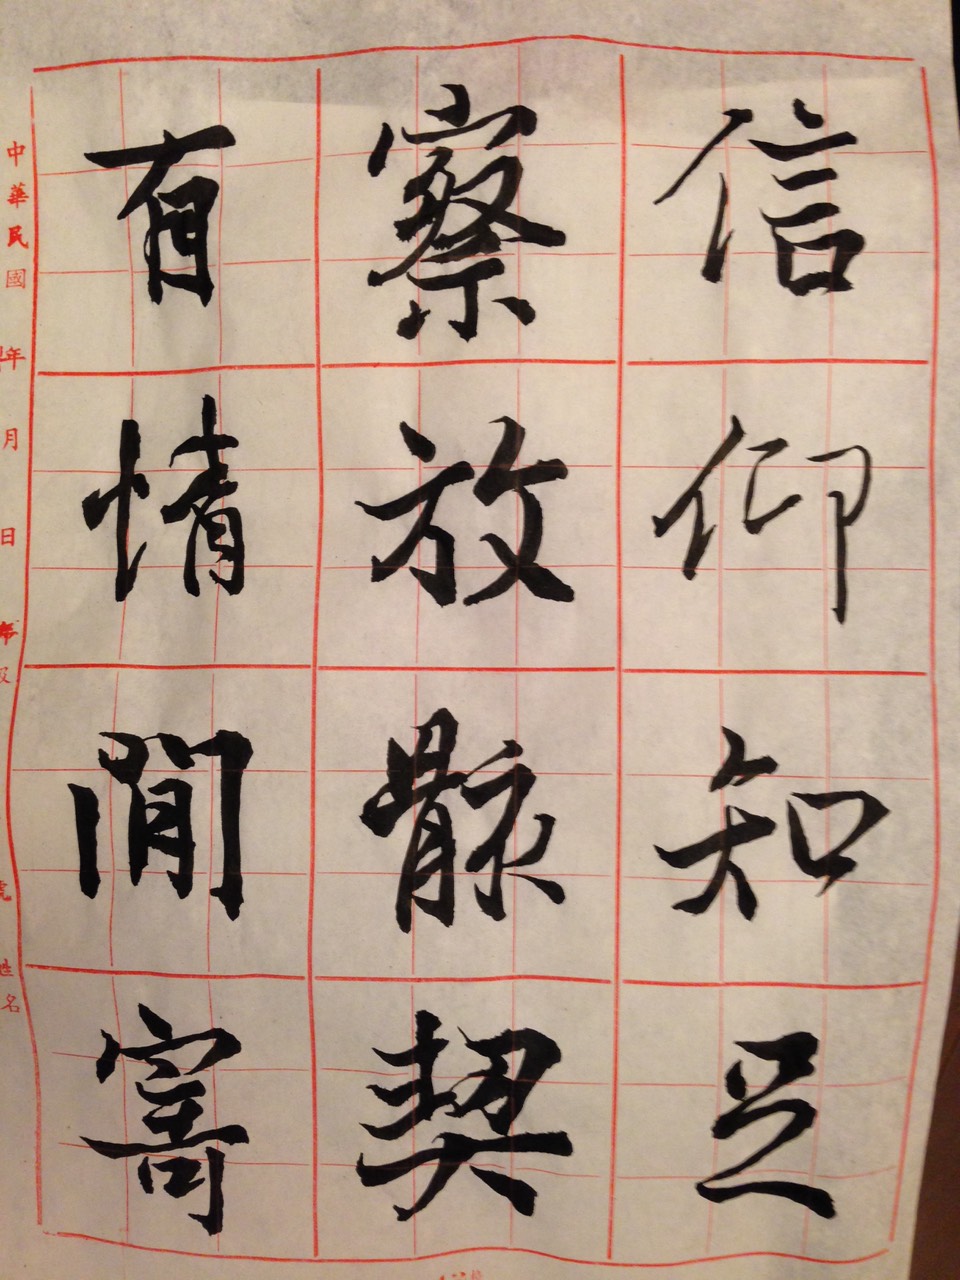 信仰知足
察放骸契
有情閒寄
中華民國 年 月 日 年級 號 姓名